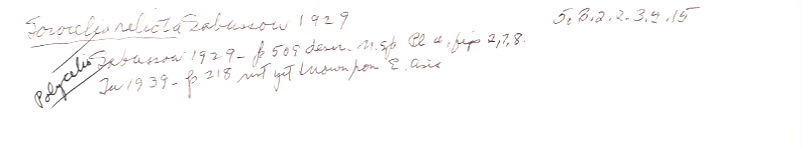 Sorocelis relicta Zabussow 1929 5.B.2.2.3.9.15
Polycelis
Zabussow 1929 - p 509 descr. n. sp Pl 4, figs 2,7,8.
In 1939 - p 218 not yet known from E. Asia